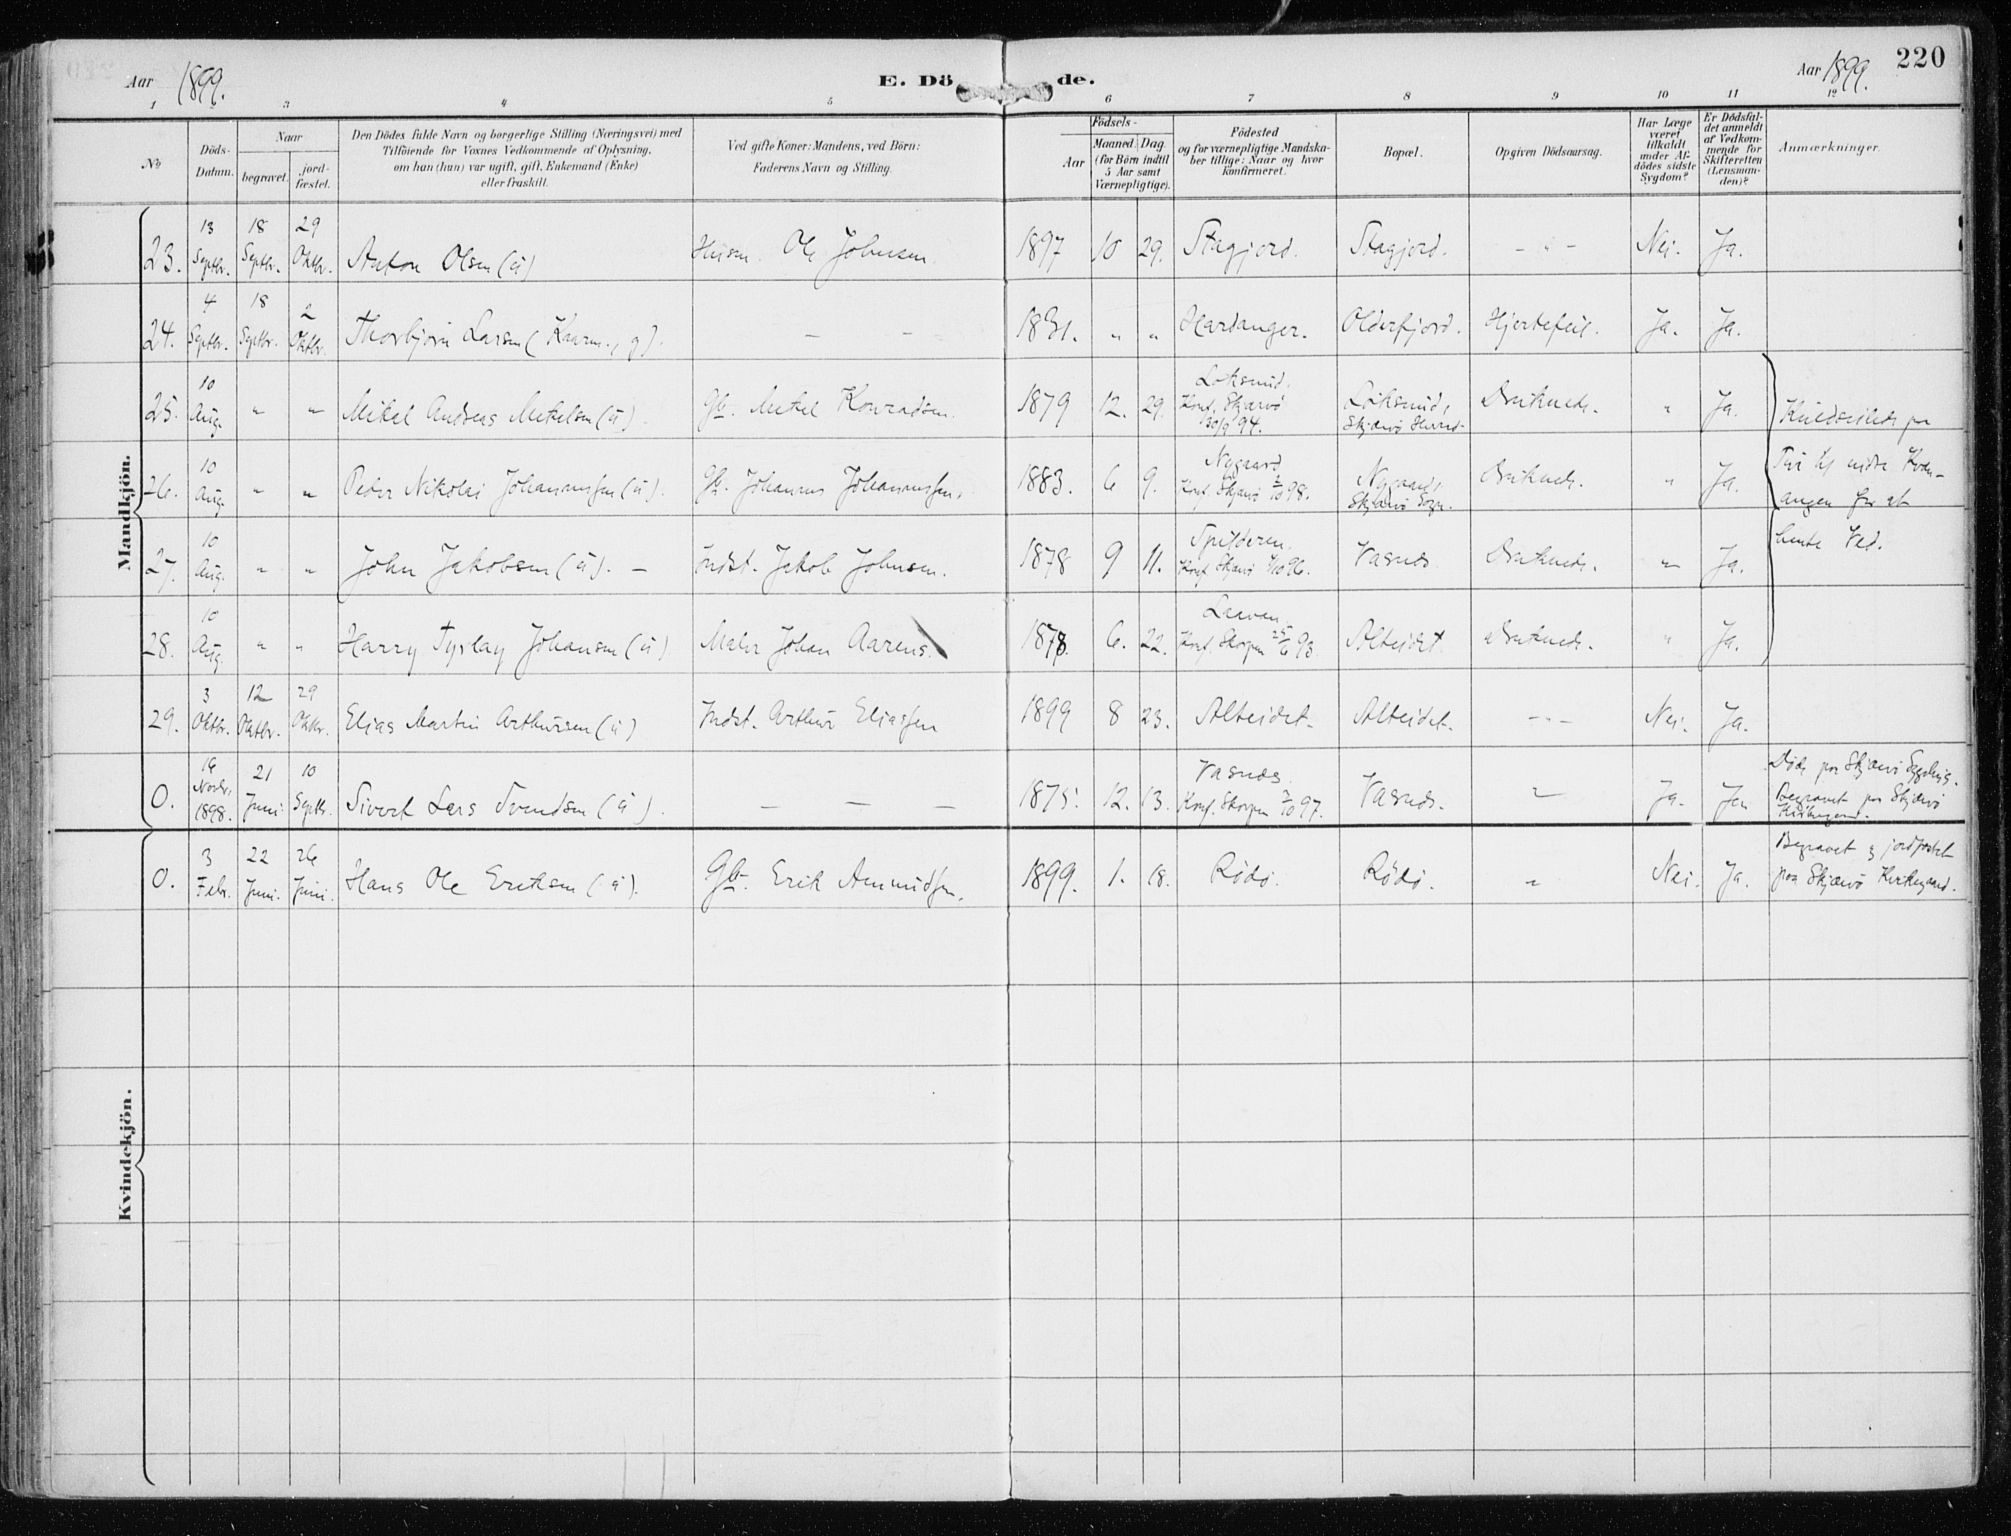 220
Aar 1899.
E. Dö de.
Aar 1899.
1 2 3 4 5 6 7 8 9 10 11 12
No
Döds-
Datum.
Naar
begravet.
jord-
fæstet.
Den Dödes fulde Navn og borgerlige Stilling (Næringsvei) med
Tilföiende for Voxnes Vedkommende af Oplysning,
om han (hun) var ugift, gift, Enkemand (Enke)
eller fraskilt.
Ved gifte Koner: Mandens, ved Börn:
Faderens Navn og Stilling.
Födsels-
Aar
Maaned.
Dag.
(for Börn indtil
5 Aar samt
Værnepligtige).
Födested
og for værnepligtige Mandska-
ber tillige: Naar og hvor
konfirmeret.
Bopæl.
Opgiven Dödsaarsag.
Har Læge
været
tilkaldt
under Af-
dödes sidste
Sygdom?
Er Dödsfal-
det anmeldt
af Vedkom-
mende for
Skifteretten
(Lensman-
den)?
Anmærkninger.
Mandkjön.
23. 13 Septbr. 18 Septbr. 29 Oktbr. Anton Olsen (ü) Husm. Ole Johnsen. 1897 10 29. Stagjord. Stagjord. - " - Nei. Ja.
24. 4 Septbr. 18 Septbr. 2 Oktbr. Thorbjörn Larsen ( g). - - 1831. " " Hardanger. Olderfjord. Hjertefeil. Ja. Ja.
25. 10 Aug. " " Mikal Andreas Mikelsen (ü). Gbr. Mikel Konradsen. 1879 12. 29. Loksund. Konf. Skjærvö 30/9 94. Loksund, Skjærvö Herred. Druknede. " Ja.
26. 10 Aug. " " Peder Nikolai Johannessen (ü). Gbr. Johannes Johannessen. 1883. 6 9. Nygaard. Konf. Skjærvö 2/10 98. Nygaard, Skjærvö Sogn. Druknede. " Ja.
27. 10 Aug. " " John Jakobsen (ü). - Indst. Jakob Johnsen. 1878 9 11. Spilderen. Konf. Skjærvö 96. Vasnes. Druknede. " Ja.
28. 10 Aug. " " Harry Johansen (ü) Maler Johan Aarens. 1878. 6. 22. Konf. Skorpen 25/6 93. Alteidet. Druknede. " Ja.
på
Tur til indre Kvæn-
angen for at
hente Ved.
29. 3 Oktbr. 12 Oktbr. 29 Oktbr. Elias Martin Arthursen (ü) Indst. Arthur Eliassen 1899 8 23. Alteidet. Alteidet. - " - Nei. Ja.
0. 16 Novbr. 1898. 21 Juni. 10 Septbr. Sivert Lars Svendsen (ü). - - - 1875. 12. 13. Vasnes. Konf. Skorpen 3/10 97. Vasnes. " Ja. Ja. Döde paa Skjærvö Sygehus. Begravet paa Skjærvö Kirkegaard.
Kvindekjön.
0. 3 Febr. 22 Juni. 26 Juni. Hans Ole Eriksen (ü). Gbr. Erik Amundsen. 1899. 1. 18. Rödö. Rödö. " Nei. Ja. Begravet og jordfæstet paa Skjærvö Kirkegaard.